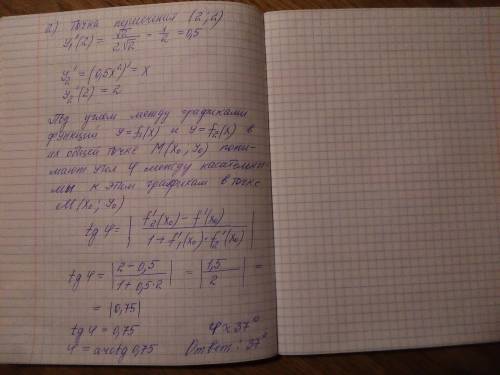 2) Точка пересечения (2; 2)
y₁'(2) = √2 / 2√2 = 1/2 = 0,5
y₂' = (0,5x²)' = x
y₂'(2) = 2
Под углом между графиками
функций y=f₁(x) и y=f₂(x) в
их общей точке M(x₀; y₀) пони-
мают угол φ между касательны-
мы к этим графикам в точке
M(x₀; y₀)
tg φ = | f₂'(x₀) - f'(x₀) / 1 + f₁'(x₀)·f₂'(x₀) |
tg φ = | 2 - 0,5 / 1 + 0,5·2 | = | 1,5 / 2 | =
= |0,75|
tg φ = 0,75 φ ≈ 37°
φ = arctg 0,75 Ответ: 37°